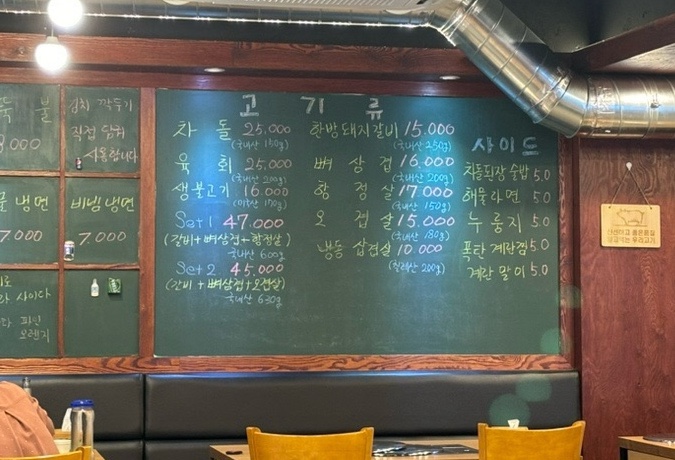 불
김치 깍두기
직접 담궈
사용합니다
냉면
7.000
비빔냉면
7.000
사이다
파인
오렌지
고 기 류
차 돌 25.000
(국내산 150g)
육 회 25.000
(국내산 200g)
생불고기 16.000
170g)
Set 1 47.000
(갈비+뼈삼겹+항정살)
국내산 600g
Set 2. 45.000
(갈비+뼈삼겹+오겹살)
국내산 630g
한방돼지갈비 15.000
(국내산 250g)
뼈 삼 겹 16.000
(국내산 200g)
항 정 살 17.000
(국내산 150g)
오 겹 살 15.000
(국내산 180g)
냉동 삼겹살 10.000
(칠레산 200g)
사이드
차돌된장술밥 5.0
해물라면 5.0
누룽지 5.0
폭탄 계란찜 5.0
계란 말이 5.0